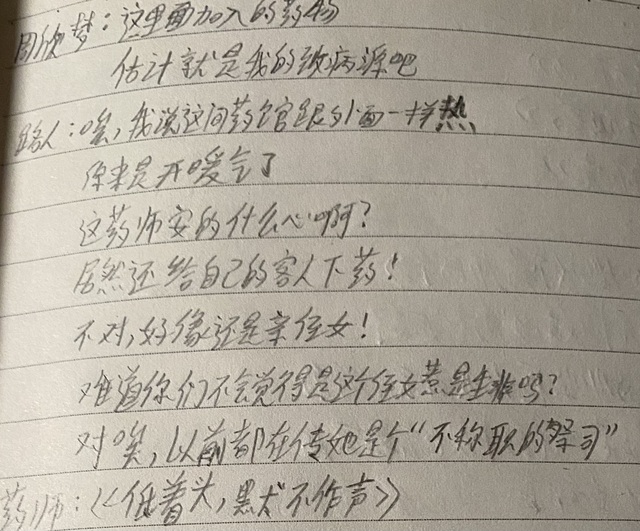 周欣梦：这里面加入的药物
估计就是我的致病源吧
路人：唉，我说这间药馆跟外面一样热
原来是开暖气了
这药师安的什么心啊？
居然还给自己的客人下药！
不对，好像还是亲侄女！
难道你们不会觉得是这个侄女惹是生非吗？
对唉，以前都在传她是个“不称职的祭司”
药师：《低着头，黑犬不作声》